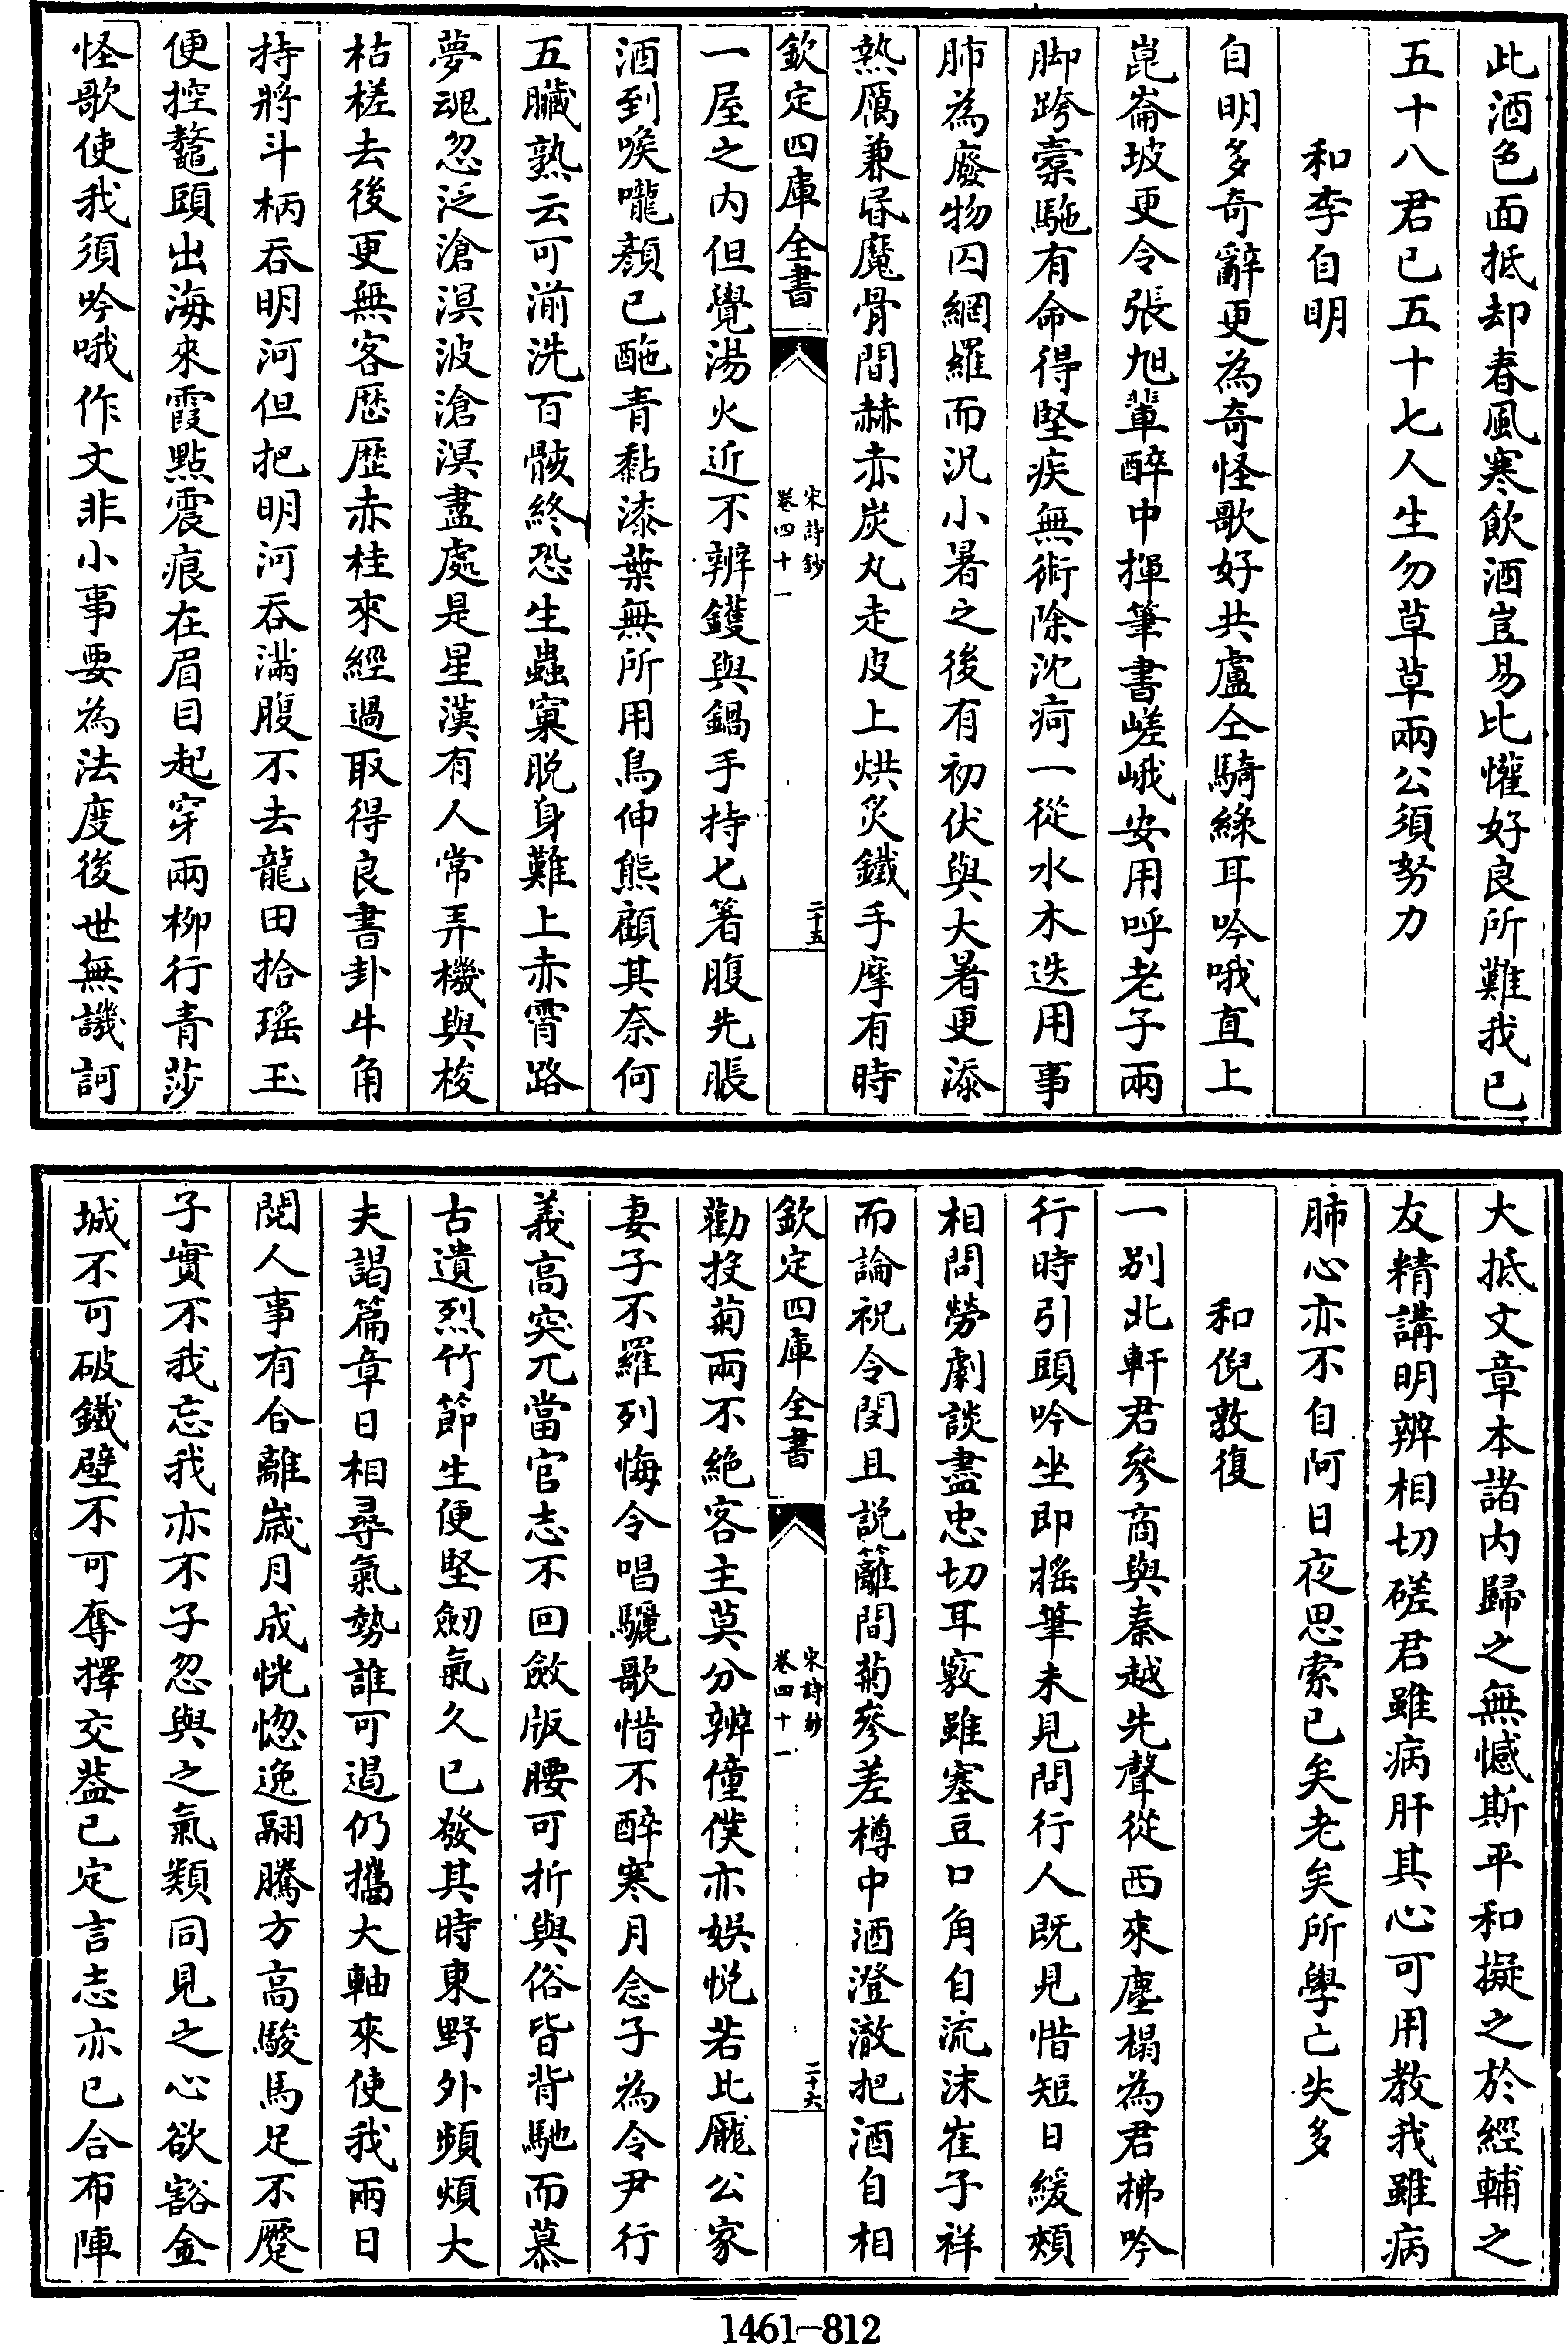 此酒色面抵却春風寒飲酒豈易比懽好良所難我已
五十八君已五十七人生勿草草兩公須努力
和李自明
自明多奇辭更為奇怪歌好共盧仝騎緑耳吟哦直上
崑崙坡更令張旭輩醉中揮筆書嵯峨安用呼老子兩
脚跨橐駞有命得堅疾無術除沈疴一從水木迭用事
肺為廢物囚網羅而況小暑之後有初伏與大暑更添
熱厲兼昏魔骨間赫赤炭丸走皮上烘炙鐵手摩有時
欽定四庫全書
宋詩鈔
卷四十一
二十五
一屋之内但覺湯火近不辨鑊與鍋手持匕箸腹先脹
酒到喉嚨顔已酏青黏漆葉無所用鳥伸熊顧其奈何
五臟熟云可湔洗百骸終恐生蟲窠脱身難上赤霄路
夢魂忽泛滄溟波滄溟盡處是星漢有人常弄機與梭
枯槎去後更無客歴歴赤桂來經過取得良書卦牛角
持將斗柄吞明河但把明河吞滿腹不去龍田拾瑶玉
便控鼇頭出海來霞點震痕在眉目起穿兩柳行青莎
怪歌使我須吟哦作文非小事要為法度後世無譏訶
大抵文章本諸内歸之無憾斯平和擬之於經輔之
友精講明辨相切磋君雖病肝其心可用教我雖病
肺心亦不自阿日夜思索已矣老矣所學亡失多
和倪敦復
一別北軒君參商與秦越先聲從西來塵榻為君拂吟
行時引頭吟坐即摇筆未見問行人既見惜短日緩頰
相問勞劇談盡忠切耳竅雖塞豆口角自流沫崔子祥
而論祝令閔且説籬間菊參差樽中酒澄澈把酒自相
欽定四庫全書
宋詩鈔
卷四十一
二十六
勸挼菊兩不絶客主莫分辨僮僕亦娱悦若比龎公家
妻子不羅列悔令唱驪歌惜不醉寒月念子為令尹行
義高突兀當官志不回斂版腰可折與俗皆背馳而慕
古遺烈竹節生便堅劒氣久已發其時東野外頻煩大
夫謁篇章日相尋氣勢誰可遏仍攜大軸來使我兩日
閲人事有合離歳月成恍惚逸翮騰方高駿馬足不蹷
子實不我忘我亦不子忽與之氣類同見之心欲豁金
城不可破鐵壁不可奪擇交葢已定言志亦已合布陣
1461—812